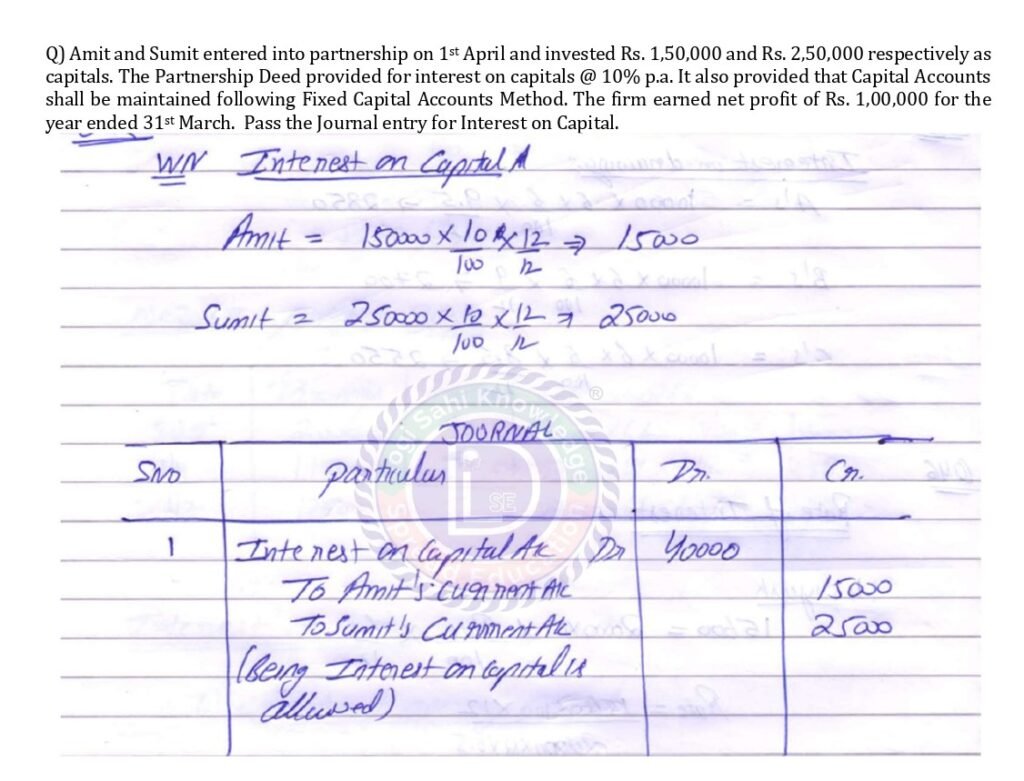 Q) Amit and Sumit entered into partnership on 1st April and invested Rs. 1,50,000 and Rs. 2,50,000 respectively as
capitals. The Partnership Deed provided for interest on capitals @ 10% p.a. It also provided that Capital Accounts
shall be maintained following Fixed Capital Accounts Method. The firm earned net profit of Rs. 1,00,000 for the
year ended 31st March. Pass the Journal entry for Interest on Capital.
WN Interest on Capital
Amit = 150000 × 10/100 × 12/12 ⇒ 15000
Sumit = 250000 × 10/100 × 12/12 ⇒ 25000
JOURNAL
SNO Particulars Dr. Cr.
1 Interest on Capital A/c Dr 40000
To Amit's Current A/c 15000
To Sumit's Current A/c 25000
(Being Interest on capital is
allowed)